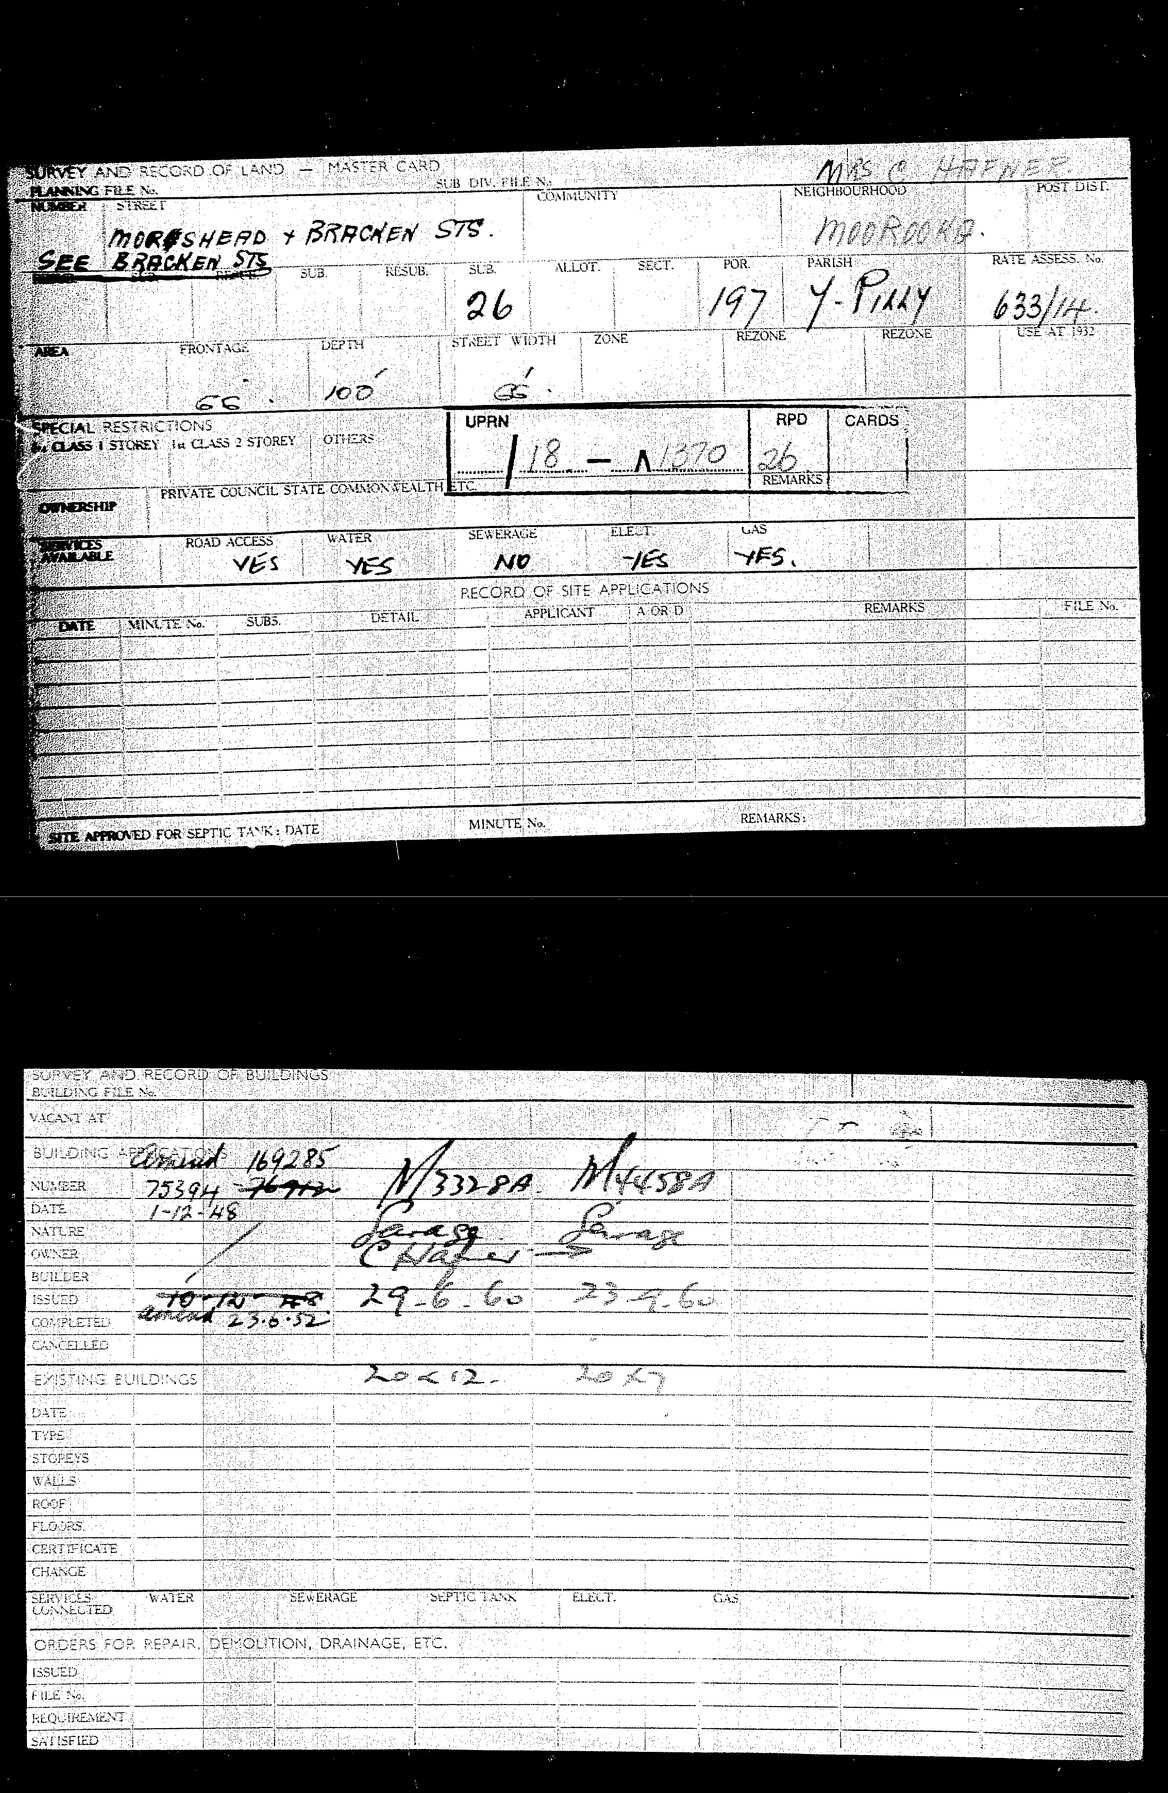 SURVEY AND RECORD OF LAND — MASTER CARD
MRS C HAFNER
PLANNING FILE No. SUB DIV. FILE No.
NUMBER STREET COMMUNITY NEIGHBOURHOOD POST DIST.
MORSHEAD + BRACKEN STS. MOOROOKA.
SEE BRACKEN STS
RESUB. SUB. RESUB. SUB. ALLOT. SECT. POR. PARISH RATE ASSESS. No.
26 197 Y-PILLY 633/14.
AREA FRONTAGE DEPTH STREET WIDTH ZONE REZONE REZONE USE AT 1932
66' 100' 66'
SPECIAL RESTRICTIONS
1st CLASS 1 STOREY 1st CLASS 2 STOREY OTHERS
UPRN RPD CARDS
/ 18 — A 1370 26
REMARKS
OWNERSHIP PRIVATE COUNCIL STATE COMMONWEALTH ETC.
SERVICES AVAILABLE ROAD ACCESS WATER SEWERAGE ELECT. GAS
YES YES NO YES YES.
RECORD OF SITE APPLICATIONS
DATE MINUTE No. SUBS. DETAIL APPLICANT A OR D REMARKS FILE No.
SITE APPROVED FOR SEPTIC TANK: DATE MINUTE No. REMARKS:
SURVEY AND RECORD OF BUILDINGS
BUILDING FILE No.
VACANT AT
BUILDING APPLICATIONS amend 169285
NUMBER 75394 76912 N/3328A. M4458A
DATE 1-12-48
NATURE Garage Garage
OWNER C Hafner
BUILDER
ISSUED 10-12-48 29-6-60 23-9-60
COMPLETED amend 23.6.52
CANCELLED
EXISTING BUILDINGS 20 x 12. 20 x 7
DATE
TYPE
STOREYS
WALLS
ROOF
FLOORS
CERTIFICATE
CHANGE
SERVICES CONNECTED WATER SEWERAGE SEPTIC TANK ELECT. GAS
ORDERS FOR REPAIR, DEMOLITION, DRAINAGE, ETC.
ISSUED
FILE No.
REQUIREMENT
SATISFIED